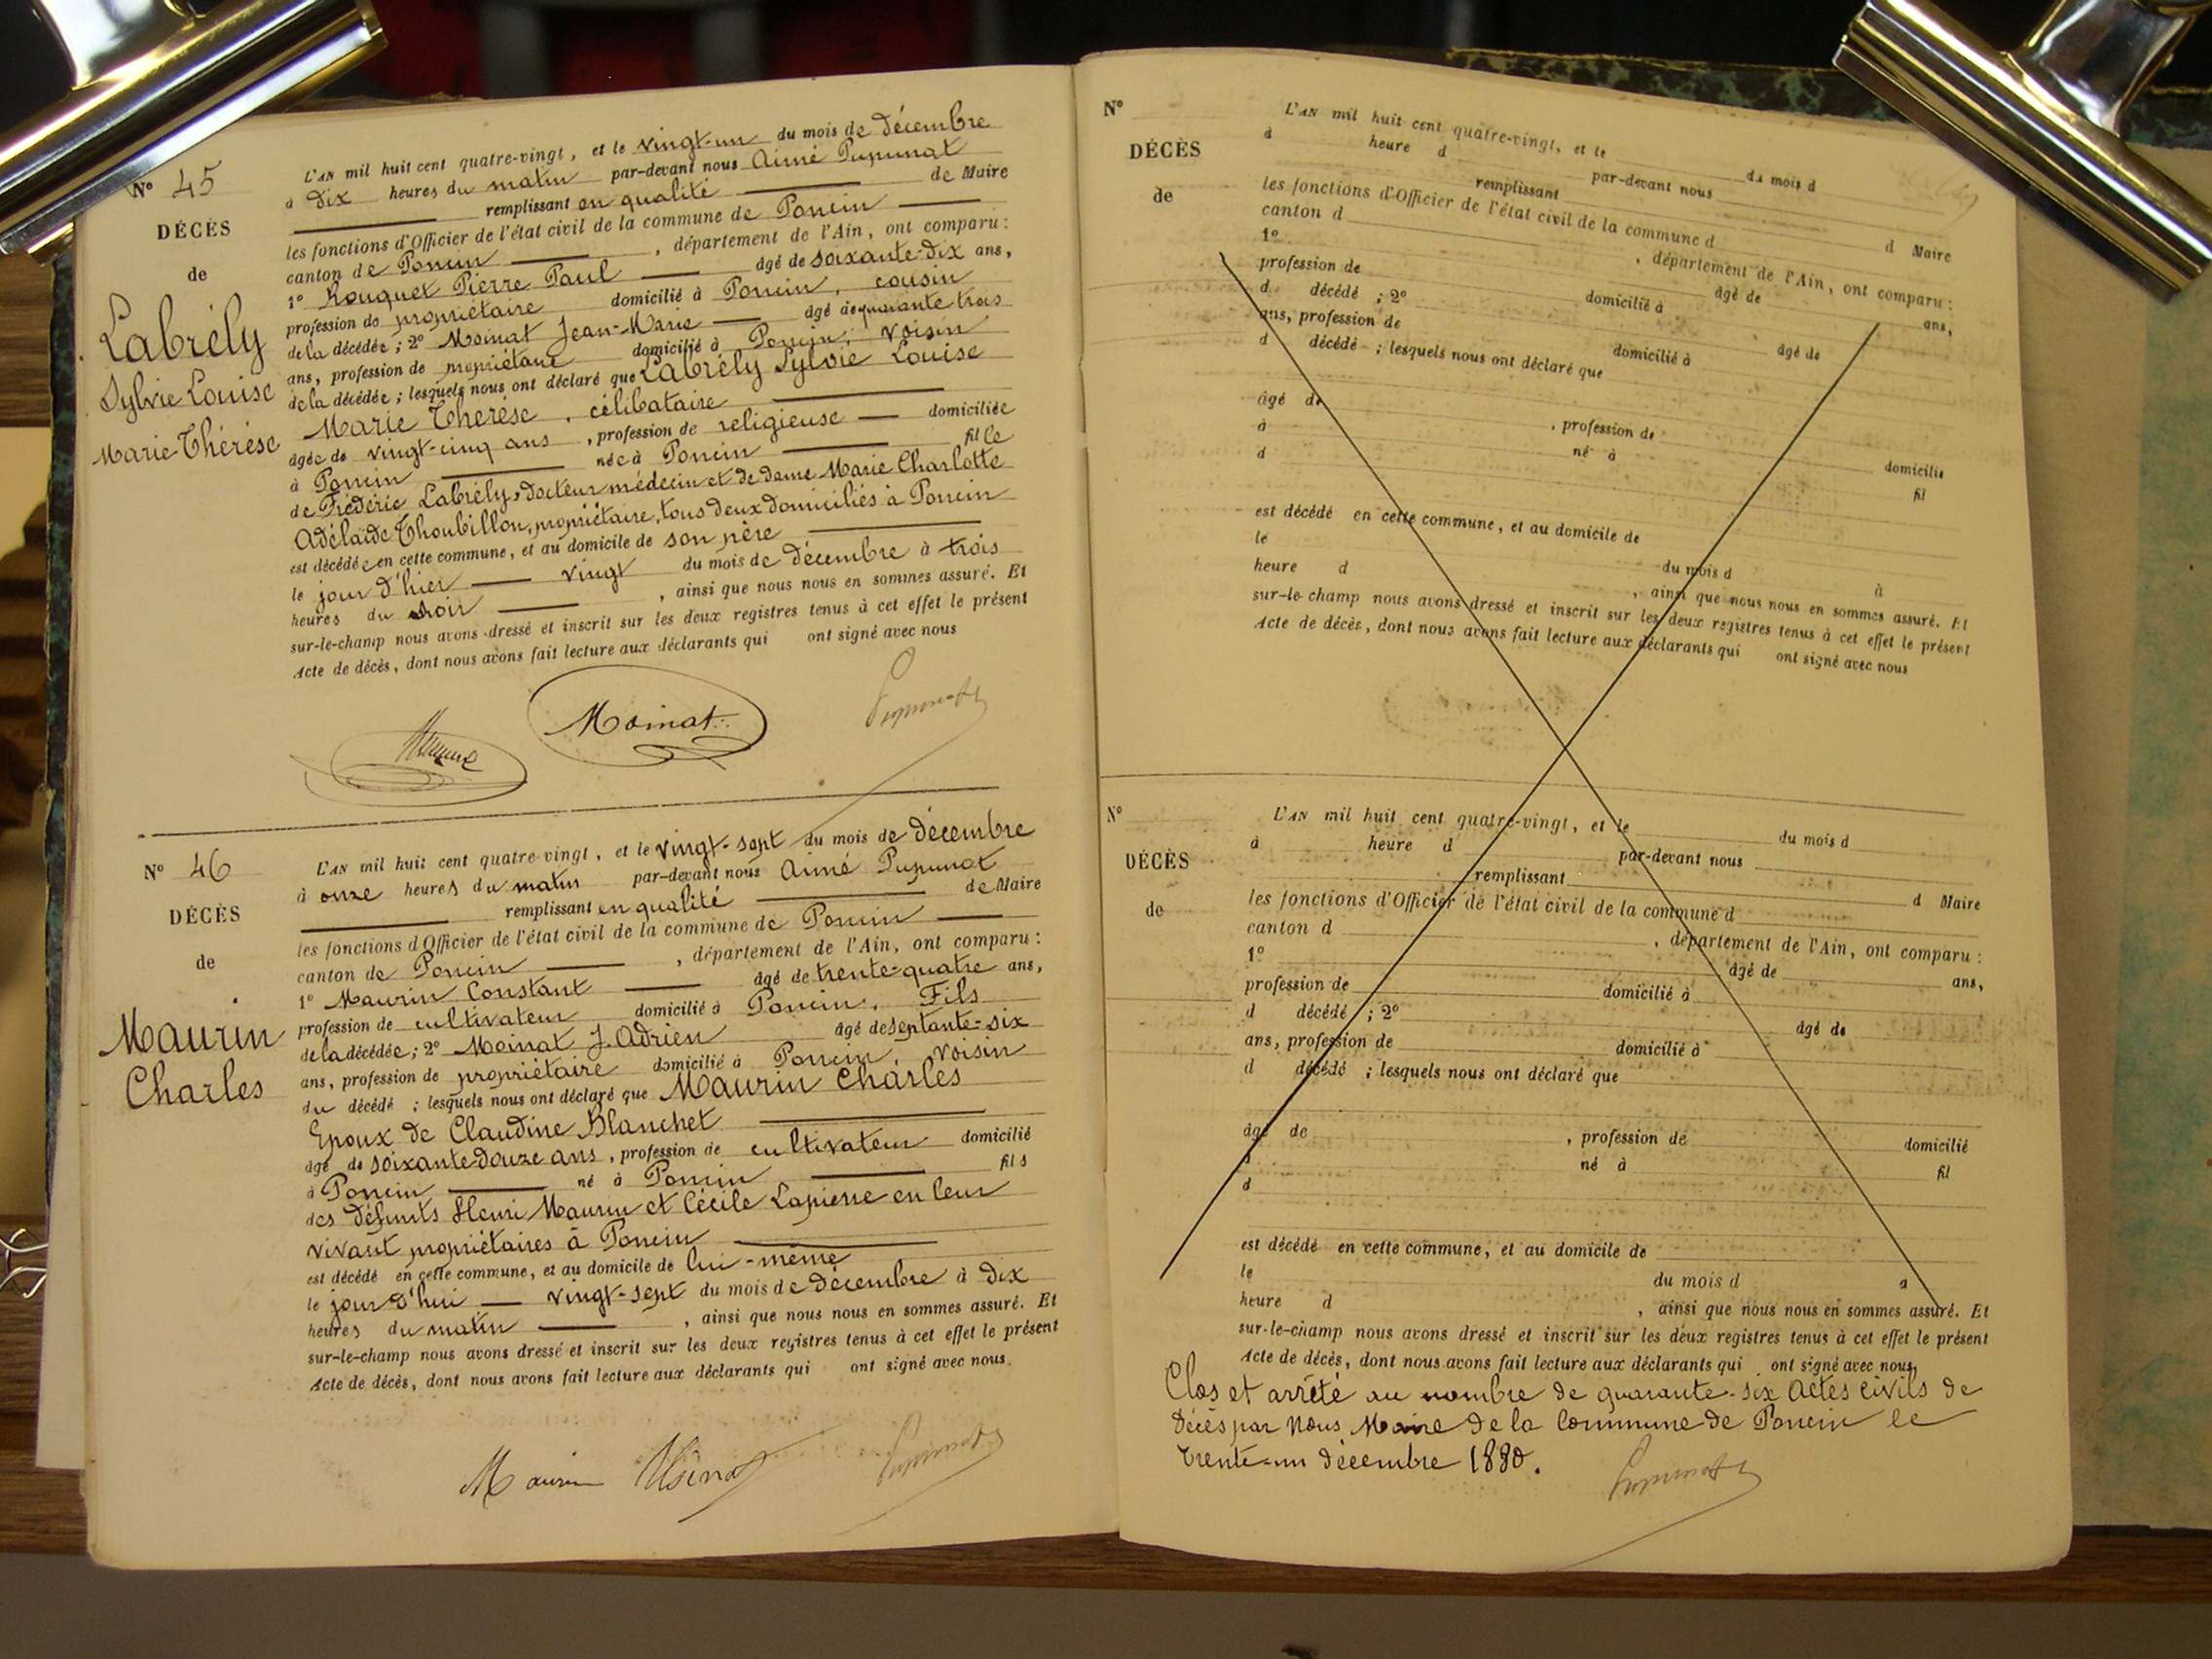 N° 45
DÉCÈS
de
Labrély
Sylvie Louise
Marie-Thérèse
L'AN mil huit cent quatre-vingt, et le vingt-un du mois de Décembre
à Dix heures du matin par-devant nous Aimé Pupunat
remplissant en qualité de Maire
les fonctions d'Officier de l'état civil de la commune de Poncin
canton de Poncin, département de l'Ain, ont comparu :
1° Rouquet Pierre Paul âgé de soixante-dix ans,
profession de propriétaire domicilié à Poncin, cousin
de la décédée ; 2° Moinat Jean-Marie âgé de quarante trois
ans, profession de propriétaire domicilié à Poncin, voisin
de la décédée ; lesquels nous ont déclaré que Labrély Sylvie Louise
Marie Thérèse, célibataire
âgée de vingt-cinq ans, profession de religieuse domiciliée
à Poncin née à Poncin fille
de Frédéric Labrély, Docteur médecin et de dame Marie Charlotte
Adélaïde Thoubillon, propriétaire, tous deux domiciliés à Poncin
est décédée en cette commune, et au domicile de son père
le jour d'hier vingt du mois de Décembre à trois
heures du soir, ainsi que nous nous en sommes assuré. Et
sur-le-champ nous avons dressé et inscrit sur les deux registres tenus à cet effet le présent
Acte de décès, dont nous avons fait lecture aux déclarants qui ont signé avec nous
Moinat
Pupunat
N° 46
DÉCÈS
de
Maurin
Charles
L'AN mil huit cent quatre-vingt, et le vingt-sept du mois de Décembre
à onze heures du matin par-devant nous Aimé Pupunat
remplissant en qualité de Maire
les fonctions d'Officier de l'état civil de la commune de Poncin
canton de Poncin, département de l'Ain, ont comparu :
1° Maurin Constant âgé de trente-quatre ans,
profession de cultivateur domicilié à Poncin, Fils
de la décédée ; 2° Moinat J. Adrien âgé de septante-six
ans, profession de propriétaire domicilié à Poncin, voisin
du décédé ; lesquels nous ont déclaré que Maurin Charles
Epoux de Claudine Blanchet
âgé de soixante-douze ans, profession de cultivateur domicilié
à Poncin né à Poncin fils
des défunts Henri Maurin et Cécile Lapierre en leur
vivant propriétaires à Poncin
est décédé en cette commune, et au domicile de lui-même
le jour d'hui vingt-sept du mois de décembre à Dix
heures du matin, ainsi que nous nous en sommes assuré. Et
sur-le-champ nous avons dressé et inscrit sur les deux registres tenus à cet effet le présent
Acte de décès, dont nous avons fait lecture aux déclarants qui ont signé avec nous.
Maurin Moinat Pupunat
N°
DÉCÈS
de
L'AN mil huit cent quatre-vingt, et le du mois d
à heure d par-devant nous
remplissant d Maire
les fonctions d'Officier de l'état civil de la commune d
canton d, département de l'Ain, ont comparu :
1° âgé de ans,
profession de domicilié à
d décédé ; 2° âgé de
ans, profession de domicilié à
d décédé ; lesquels nous ont déclaré que
âgé de, profession de domicilié
à né à fil
d
est décédé en cette commune, et au domicile de
le du mois d à
heure d, ainsi que nous nous en sommes assuré. Et
sur-le-champ nous avons dressé et inscrit sur les deux registres tenus à cet effet le présent
Acte de décès, dont nous avons fait lecture aux déclarants qui ont signé avec nous
N°
DÉCÈS
de
L'AN mil huit cent quatre-vingt, et le du mois d
à heure d par-devant nous
remplissant d Maire
les fonctions d'Officier de l'état civil de la commune d
canton d, département de l'Ain, ont comparu :
1° âgé de ans,
profession de domicilié à
d décédé ; 2° âgé de
ans, profession de domicilié à
d décédé ; lesquels nous ont déclaré que
âgé de, profession de domicilié
à né à fil
d
est décédé en cette commune, et au domicile de
le du mois d à
heure d, ainsi que nous nous en sommes assuré. Et
sur-le-champ nous avons dressé et inscrit sur les deux registres tenus à cet effet le présent
Acte de décès, dont nous avons fait lecture aux déclarants qui ont signé avec nous,
Clos et arrêté au nombre de quarante-six Actes civils de
Décès par Nous Maire de la Commune de Poncin le
trente-un décembre 1880.
Pupunat